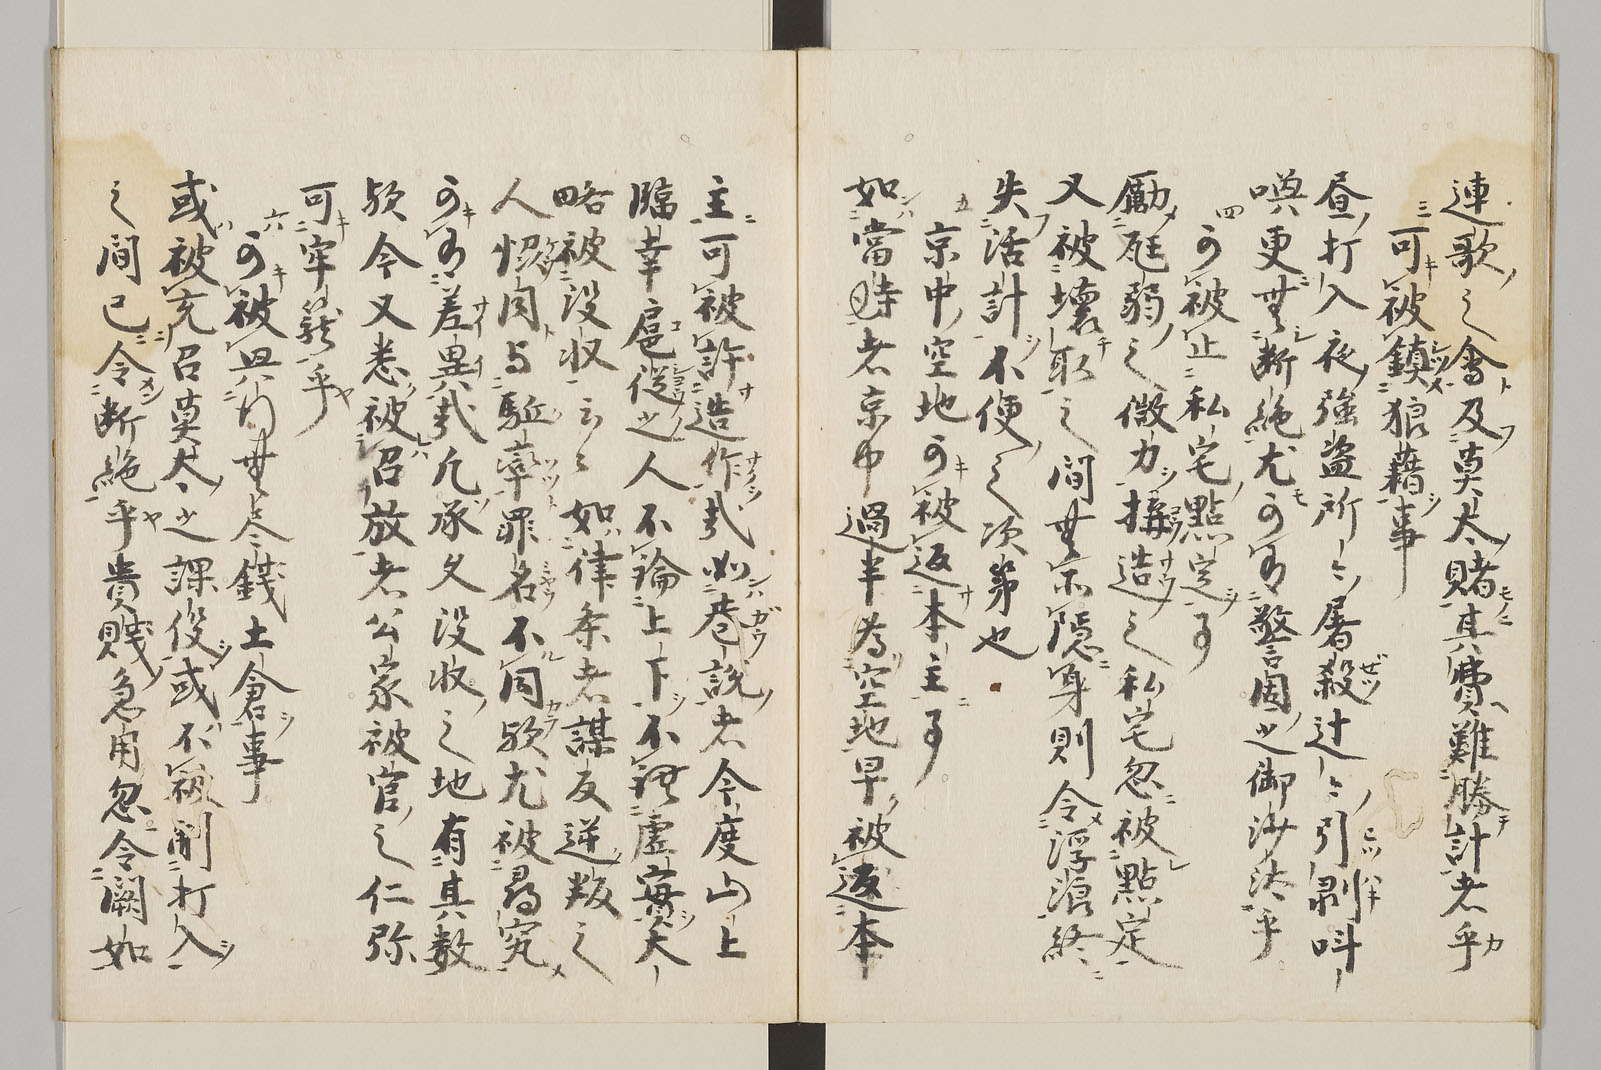 連歌之會及莫太賭其費難勝計者乎
三可被鎮狼藉事
昼打入夜強盗所々屠殺辻々引剥叫
喚更無断絶尤可有警固之御沙汰乎
四可被止私宅點定事
励尫弱之微力搆造之私宅忽被點定
又被壊取之間無不隠身則令浮浪終
失活計不便之次第也
五京中空地可被返本主事
如當時者京中過半為空地早被返本
主可被許造作哉如巷説者今度山上
臨幸扈従之人不論上下不謂虚實大
略被没収云々如律条者謀反逆叛之
人協同与駈率罪名不同欤尤被尋究
可有差異哉凡承久没収之地有其数
欤今又悉被召放者公家被官之仁弥
可牢籠乎
六可被興行無尽錢土倉事
或被充召莫太之課役或不被制打入
之間已令断絶乎貴賤急用忽令闕如